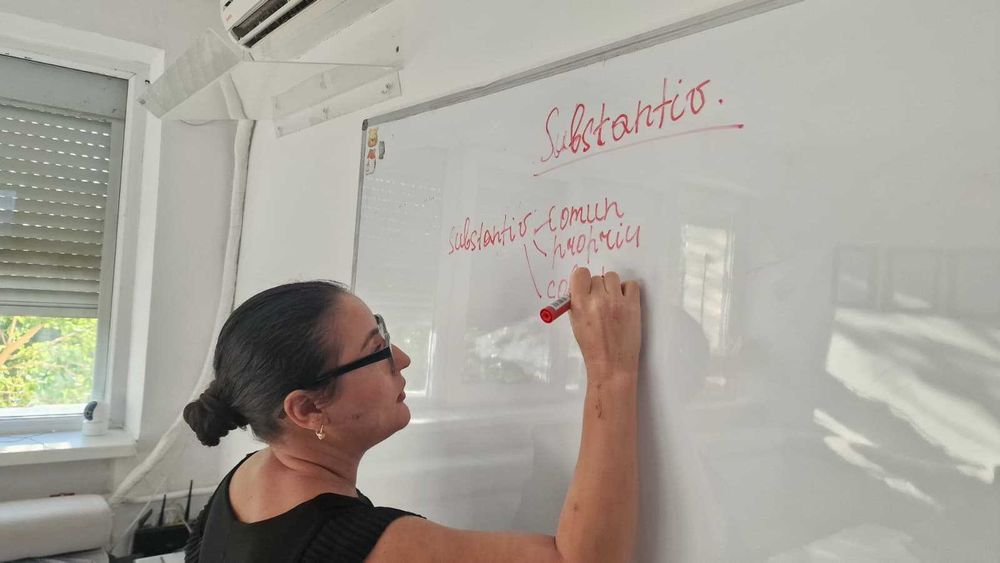 Substantiv.
substantiv comun
propriu